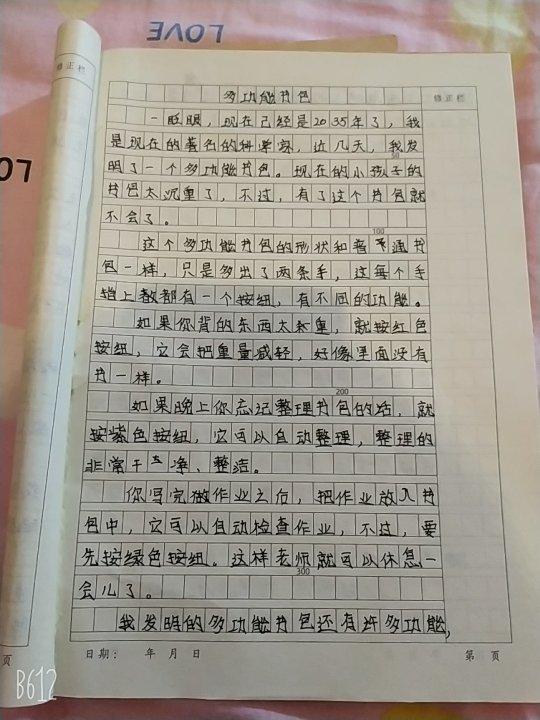 LOVE
LO
修正栏
修正栏
多功能书包
一眨眼，现在已经是2035年了，我
是现在的著名的科学家，近几天，我发
50
明了一个多功能书包。现在的小孩子的
书包太沉重了，不过，有了这个书包就
不会了。
100
这个多功能书包的形状和普通书
包一样，只是多出了两条手，这每个手
指上都有一个按纽，有不同的功能。
如果你背的东西太重，就按红色
按纽，它会把重量减轻，好像里面没有
书一样。
200
如果晚上你忘记整理书包的话，就
按紫色按纽，它可以自动整理，整理的
非常干净、整洁。
你写完做作业之后，把作业放入书
包中，它可以自动检查作业，不过，要
先按绿色按纽。这样老师就可以休息一
300
会儿了。
我发明的多功能书包还有许多功能，
页
日期： 年 月 日
第 页
B612